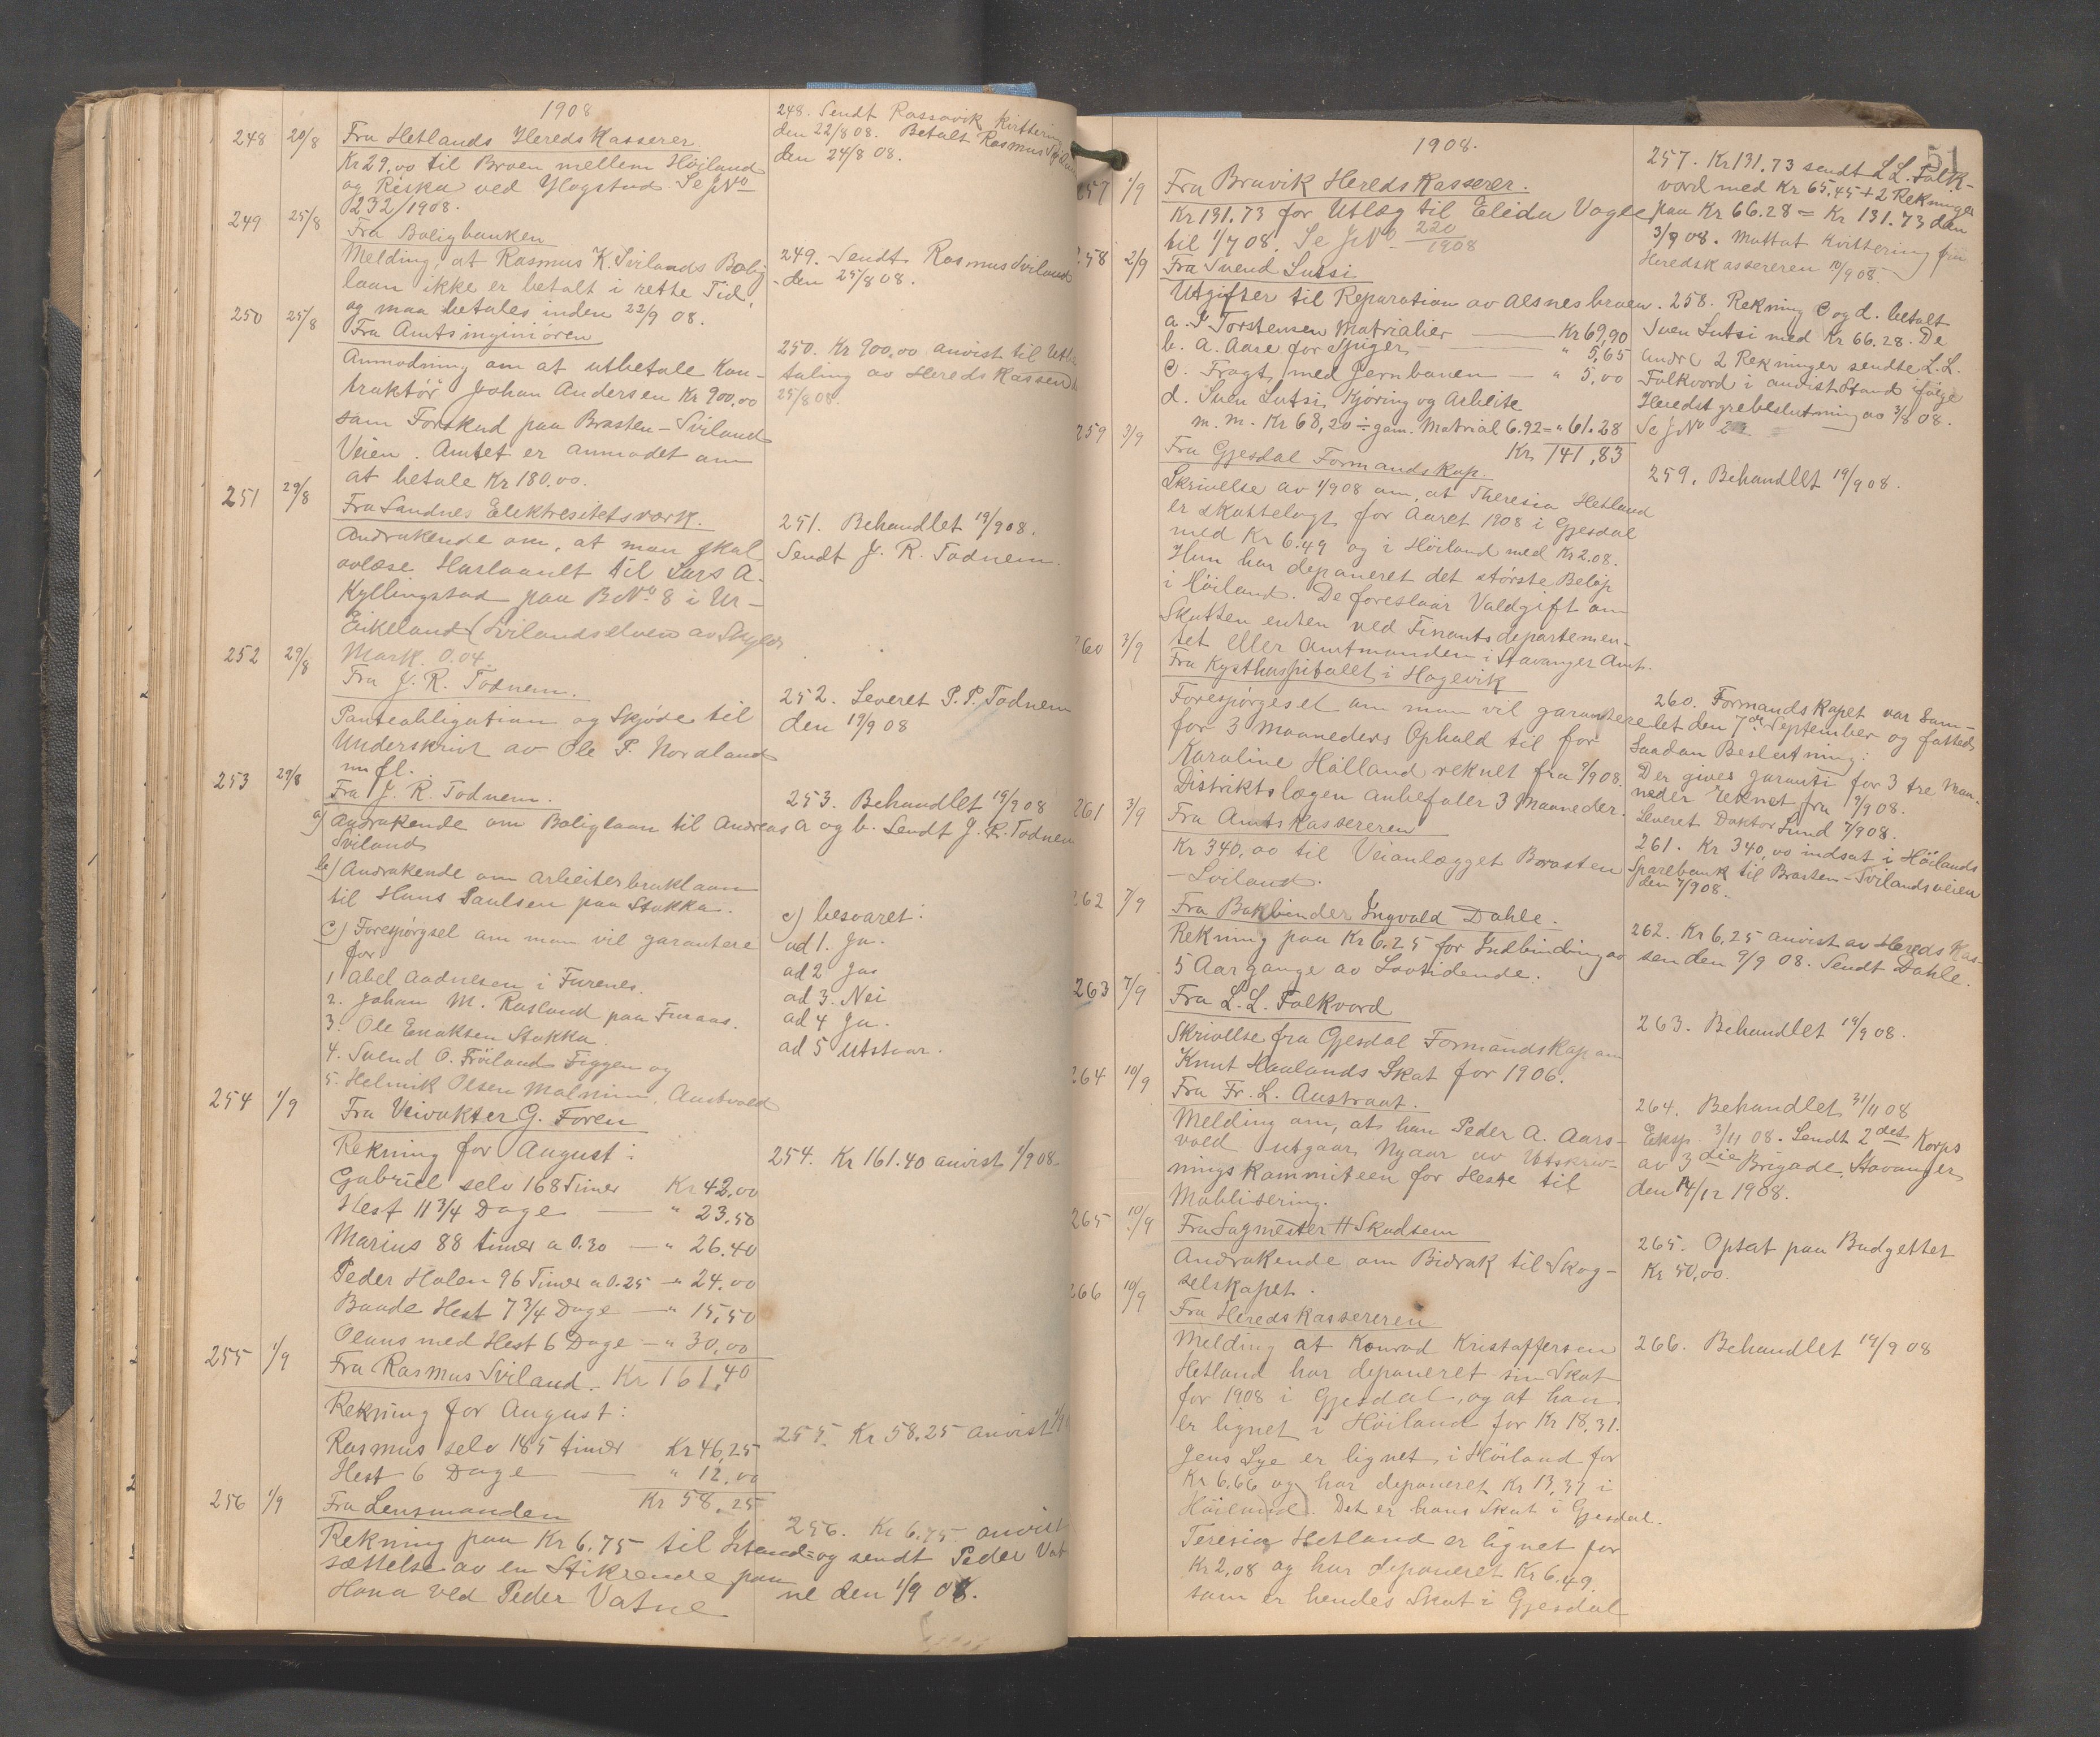 1908
248 20/8 Fra Hetlands Heredskasserer
Kr 29,00 til Broen mellem Höiland
og Riska ved Ylogstad Se J No
232/1908.
248. Sendt Rossavik kvittering
den 22/8 08. Betalt Rasmus
den 24/8 08.
249 25/8 Fra Boligbanken
Melding, at Rasmus K. Svilands Bolig
laan ikke er betalt i rette Tid,
og maa betales inden 22/9 08.
249. Sendt Rasmus Sviland
den 25/8 08.
250 25/8 Fra Amtsinginiören
Anmodning om at utbetale Kon-
traktör Johan Andersen Kr 900,00
som Forskud paa Brasten-Sviland
Veien. Amtet er anmodet om
at betale Kr 180.00.
250. Kr 900,00 anvist til Utbe
taling av Heredskassen
25/8 08.
251 29/8 Fra Sandnes Elektresitetsværk.
Andrakende om, at man skal
avlæse Huslaanet til Lars A.
Kyllingstad paa B No 8 i Ur-
Eikeland (Svilandselven av Skyld
Mark. 0.04.
251. Behandlet 19/9 08.
Sendt J. R. Todnem.
252 29/8 Fra J. R. Todnem.
Panteobligation og Skjöde til
Underskrivt av Ole P. Nordland
m fl.
252. Leveret P. P. Todnem
den 19/9 08
253 29/8 Fra J. R. Todnem.
a) Andrakende om Boliglaan til Andreas
Sviland
b) Andrakende om arbeiterbruklaan
til Hans Paulsen paa Stokka.
c) Forespörgsel om man vil garantere
for
1 Abel Aadnesen i Furenes.
2. Johan M. Rasland paa Furaas.
3. Ole Enoksen Stokka
4. Svend O. Fröiland Figgen og
5. Helmik Olsen Malmin, Austvold
253. Behandlet 19/9 08
a og b. Sendt J. R. Todnem
c) besvaret:
ad 1. Ja.
ad 2 Ja
ad 3. Nei
ad 4 Ja.
ad 5 Utstaar.
254 1/9 Fra Veivokter G. Foren
Rekning for August:
Gabriel selv 168 Timer Kr 42,00
Hest 11 3/4 Dage — " 23.50
Marius 88 timer a 0.30 — " 26.40
Peder Holen 96 Timer a 0.25 — " 24.00
Baade Hest 7 3/4 Dage — " 15,50
Olaus med Hest 6 Dage — " 30,00
Kr 161,40
254. Kr 161.40 anvist 1/9 08.
255 1/9 Fra Rasmus Sviland.
Rekning for August:
Rasmus selv 185 timer Kr 46,25
Hest 6 Dage — " 12,00
Kr 58,25
255. Kr 58.25 anvist 1/9
256 1/9 Fra Lensmanden
Rekning paa Kr 6.75 til Istand-
sættelse av en Stikrende paa
Hana ved Peder Vatne
256. Kr 6.75 anvist
og sendt Peder Vat
ne den 1/9 08.
51
1908.
257 1/9 Fra Bruvik Heredskasserer.
Kr 131.73 for Utlæg til Elida Vagle
til 1/7 08. Se J No 220/1908
257. Kr 131.73 sendt L L. Folk-
vord med Kr 65,45 + 2 Rekninger
paa Kr 66.28 = Kr 131.73 den
3/9 08. Mottat Kvittering fra
Heredskassereren 10/9 08.
258 2/9 Fra Svend Lutsi
Utgifter til Reparation av Alsnesbroen.
a. T Torstensen Matrialier — Kr 69,90
b. A. Aase for Spiger — " 5,65
c. Fragt med Jernbanen — " 5,00
d. Sven Lutsi Kjöring og Arbeite
m. m. Kr 68,20 ÷ gam. Matrial 6.92 = " 61.28
Kr 141,83
258. Rekning c og d. betalt
Sven Lutsi med Kr 66.28. De
andre 2 Rekninger sendte L. L.
Folkvord i anvist Stand ifölge
Heredstyrebeslutning av 3/8 08.
Se J No
259 3/9 Fra Gjesdal Formandskap.
Skrivelse av 1/9 08 om, at Theresia Hetland
er skattelagt for Aaret 1908 i Gjesdal
med Kr 6.49 og i Höiland med Kr 2.08.
Hun har deponeret det störste Belöp
i Höiland. De foreslaar Voldgift om
Skatten enten ved Finantsdepartemen-
tet eller Amtmanden i Stavanger Amt.
259. Behandlet 19/9 08.
260 3/9 Fra Kysthospitalet i Hagevik
Forespörgsel om man vil garantere
for 3 Maaneders Ophold til for
Karoline Hålland reknet fra 9/9 08.
Distriktslægen anbefaler 3 Maaneder.
260. Formandskapet var Sam-
let den 7de September og fattet
Saadan Beslutning:
Der gives garanti for 3 tre Maa-
neder reknet fra 9/9 08.
Leveret Doktor Lund 7/9 08.
261 3/9 Fra Amtskassereren
Kr 340,00 til Veianlægget Brasten
-Sviland.
261. Kr 340,00 indsat i Höilands
Sparebank til Brasten-Svilandsveien
den 7/9 08.
262 7/9 Fra Bokbinder Ingvald Dahle.
Rekning paa Kr 6.25 for Indbinding av
5 Aargange av Lovtidende.
262. Kr 6,25 anvist av Heredskas-
sen den 9/9 08. Sendt Dahle.
263 7/9 Fra L. L. Folkvord
Skrivelse fra Gjesdal Formandskap om
Knut Haalands Skat for 1906.
263. Behandlet 19/9 08.
264 10/9 Fra Fr. L. Austraat.
Melding om, at han Peder A. Aars-
vold utgaar Nyaar av Utskriv-
ningskommiteen for Heste til
Moblisering.
264. Behandlet 31/11 08
Eksp. 3/11 08. Sendt 2det Korps
av 3die Brigade, Stavanger
den 14/12 1908.
265 10/9 Fra Sagmester H Skadsem
Andrakende om Bidrak til Skog-
selskapet.
265. Optat paa Budgettet
Kr 50,00.
266 10/9 Fra Heredskassereren
Melding at Konrad Kristoffersen
Hetland har deponeret sin Skat
for 1908 i Gjesdal, og at han
er lignet i Höiland for Kr 18,31.
Jens Lye er lignet i Höiland for
Kr 6,66 og har deponeret Kr 13,37 i
Höiland. Det er hans Skat i Gjesdal.
Teresia Hetland er lignet for
Kr 2,08 og har deponeret Kr 6.49.
som er hendes Skat i Gjesdal
266. Behandlet 19/9 08